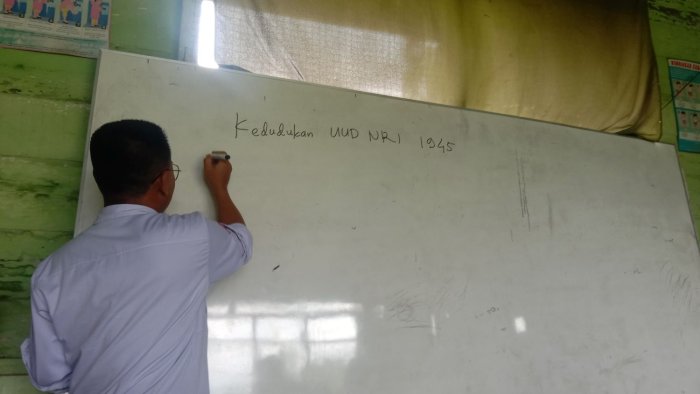 Kedudukan UUD NRI 1945